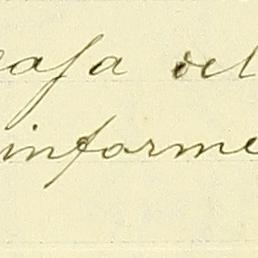 casa del
informe